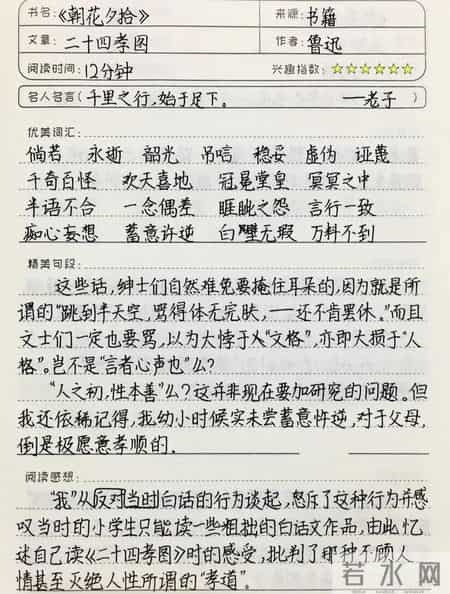 书名:《朝花夕拾》 来源:书籍
文章:二十四孝图 作者:鲁迅
阅读时间:12分钟 兴趣指数:★★★★★★
名人名言(千里之行,始于足下。 ——老子)
优美词汇:
倘若 永逝 韶光 吊唁 稳妥 虚伪 诬蔑
千奇百怪 欢天喜地 冠冕堂皇 冥冥之中
半语不合 一念偶差 睚眦之怨 言行一致
痴心妄想 蓄意许逆 白璧无瑕 万料不到
精美句段:
这些话,绅士们自然难免要掩住耳朵的,因为就是所
谓的"跳到半天空,骂得体无完肤,——还不肯罢休。"而且
文士们一定也要骂,以为大悖于"文格",亦即大损于"人
格"。岂不是"言者心声也"么?
"人之初,性本善"么?这并非现在要加研究的问题。但
我还依稀记得,我幼小时候实未尝蓄意忤逆,对于父母,
倒是极愿意孝顺的.
阅读感想:
"我"从反对当时白话的行为谈起,怒斥了这种行为并感
叹当时的小学生只能读一些粗拙的白话文作品,由此忆
述自己读《二十四孝图》时的感受,批判了那种不顾人
情甚至灭绝人性所谓的"孝道"。
若水网